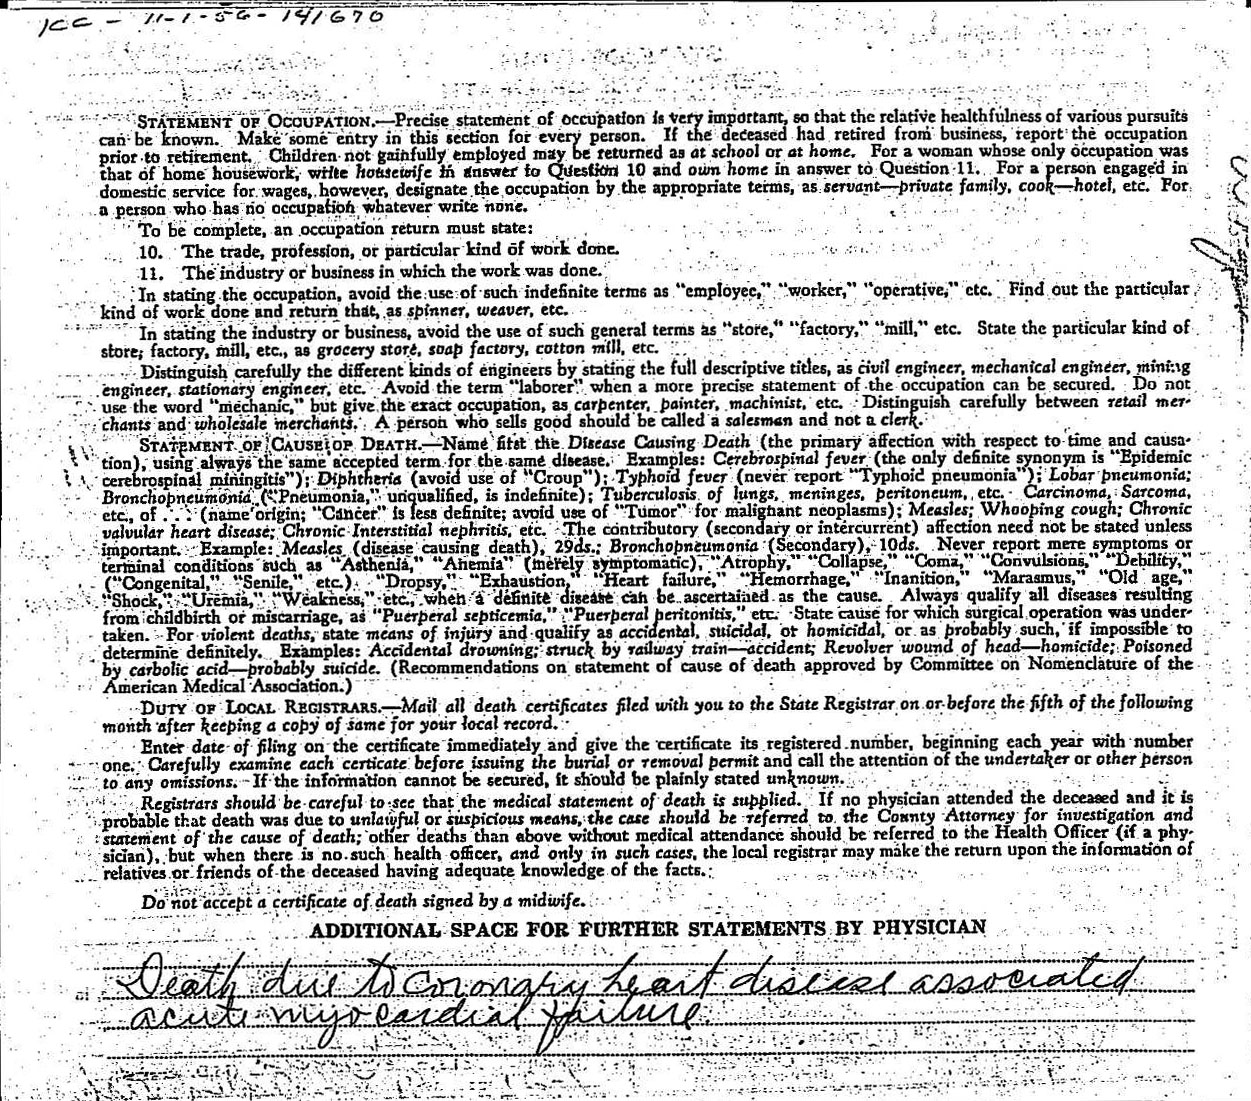 ICC - 11-1-56 - 141670
STATEMENT OF OCCUPATION.—Precise statement of occupation is very important, so that the relative healthfulness of various pursuits
can be known. Make some entry in this section for every person. If the deceased had retired from business, report the occupation
prior to retirement. Children not gainfully employed may be returned as at school or at home. For a woman whose only occupation was
that of home housework, write housewife in answer to Question 10 and own home in answer to Question 11. For a person engaged in
domestic service for wages, however, designate the occupation by the appropriate terms, as servant—private family, cook—hotel, etc. For
a person who has no occupation whatever write none.
To be complete, an occupation return must state:
10. The trade, profession, or particular kind of work done.
11. The industry or business in which the work was done.
In stating the occupation, avoid the use of such indefinite terms as "employee," "worker," "operative," etc. Find out the particular
kind of work done and return that, as spinner, weaver, etc.
In stating the industry or business, avoid the use of such general terms as "store," "factory," "mill," etc. State the particular kind of
store, factory, mill, etc., as grocery store, soap factory, cotton mill, etc.
Distinguish carefully the different kinds of engineers by stating the full descriptive titles, as civil engineer, mechanical engineer, mining
engineer, stationary engineer, etc. Avoid the term "laborer" when a more precise statement of the occupation can be secured. Do not
use the word "mechanic," but give the exact occupation, as carpenter, painter, machinist, etc. Distinguish carefully between retail mer-
chants and wholesale merchants. A person who sells good should be called a salesman and not a clerk.
STATEMENT OF CAUSE OF DEATH.—Name first the Disease Causing Death (the primary affection with respect to time and causa-
tion), using always the same accepted term for the same disease. Examples: Cerebrospinal fever (the only definite synonym is "Epidemic
cerebrospinal miningitis"); Diphtheria (avoid use of "Croup"); Typhoid fever (never report "Typhoid pneumonia"); Lobar pneumonia;
Bronchopneumonia ("Pneumonia," unqualified, is indefinite); Tuberculosis of lungs, meninges, peritoneum, etc. Carcinoma, Sarcoma,
etc., of . . . (name origin; "Cancer" is less definite; avoid use of "Tumor" for malignant neoplasms); Measles; Whooping cough; Chronic
valvular heart disease; Chronic Interstitial nephritis, etc. The contributory (secondary or intercurrent) affection need not be stated unless
important. Example: Measles (disease causing death), 29ds.; Bronchopneumonia (Secondary), 10ds. Never report mere symptoms or
terminal conditions such as "Asthenia," "Anemia" (merely symptomatic), "Atrophy," "Collapse," "Coma," "Convulsions," "Debility,"
("Congenital," "Senile," etc.) "Dropsy," "Exhaustion," "Heart failure," "Hemorrhage," "Inanition," "Marasmus," "Old age,"
"Shock," "Uremia," "Weakness," etc., when a definite disease can be ascertained as the cause. Always qualify all diseases resulting
from childbirth or miscarriage, as "Puerperal septicemia," "Puerperal peritonitis," etc. State cause for which surgical operation was under-
taken. For violent deaths, state means of injury and qualify as accidental, suicidal, or homicidal, or as probably such, if impossible to
determine definitely. Examples: Accidental drowning; struck by railway train—accident; Revolver wound of head—homicide; Poisoned
by carbolic acid—probably suicide. (Recommendations on statement of cause of death approved by Committee on Nomenclature of the
American Medical Association.)
DUTY OF LOCAL REGISTRARS.—Mail all death certificates filed with you to the State Registrar on or before the fifth of the following
month after keeping a copy of same for your local record.
Enter date of filing on the certificate immediately and give the certificate its registered number, beginning each year with number
one. Carefully examine each certicate before issuing the burial or removal permit and call the attention of the undertaker or other person
to any omissions. If the information cannot be secured, it should be plainly stated unknown.
Registrars should be careful to see that the medical statement of death is supplied. If no physician attended the deceased and it is
probable that death was due to unlawful or suspicious means, the case should be referred to the County Attorney for investigation and
statement of the cause of death; other deaths than above without medical attendance should be referred to the Health Officer (if a phy-
sician), but when there is no such health officer, and only in such cases, the local registrar may make the return upon the information of
relatives or friends of the deceased having adequate knowledge of the facts.
Do not accept a certificate of death signed by a midwife.
ADDITIONAL SPACE FOR FURTHER STATEMENTS BY PHYSICIAN
Death due to coronary heart disease associated
acute myocardial failure.